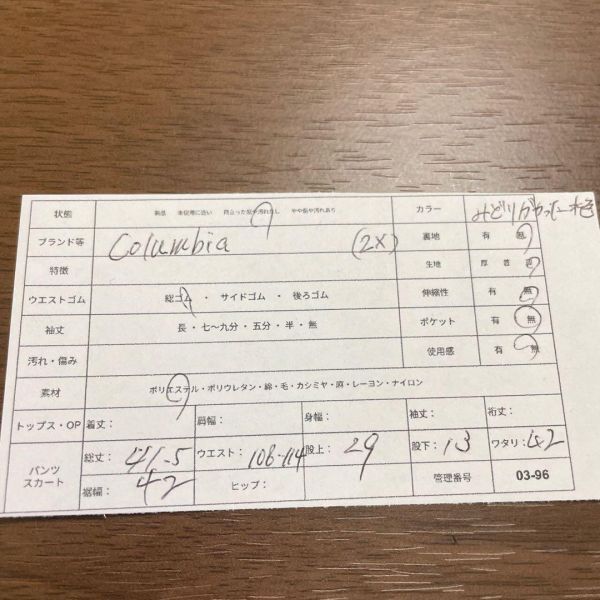 状態 新品 未使用に近い 目立った傷や汚れなし やや傷や汚れあり カラー みどりがかった柿色
ブランド等 Columbia (2X) 裏地 有 無
特徴 生地 厚 普 薄
ウエストゴム 総ゴム ・ サイドゴム ・ 後ろゴム 伸縮性 有 無
袖丈 長・七～九分・五分・半・無 ポケット 有 無
汚れ・傷み 使用感 有 無
素材 ポリエステル・ポリウレタン・綿・毛・カシミヤ・麻・レーヨン・ナイロン
トップス・OP 着丈: 肩幅: 身幅: 袖丈: 裄丈:
パンツ スカート 総丈: 41.5 ウエスト: 106-114 股上: 29 股下: 13 ワタリ: 42
裾幅: 42 ヒップ: 管理番号 03-96